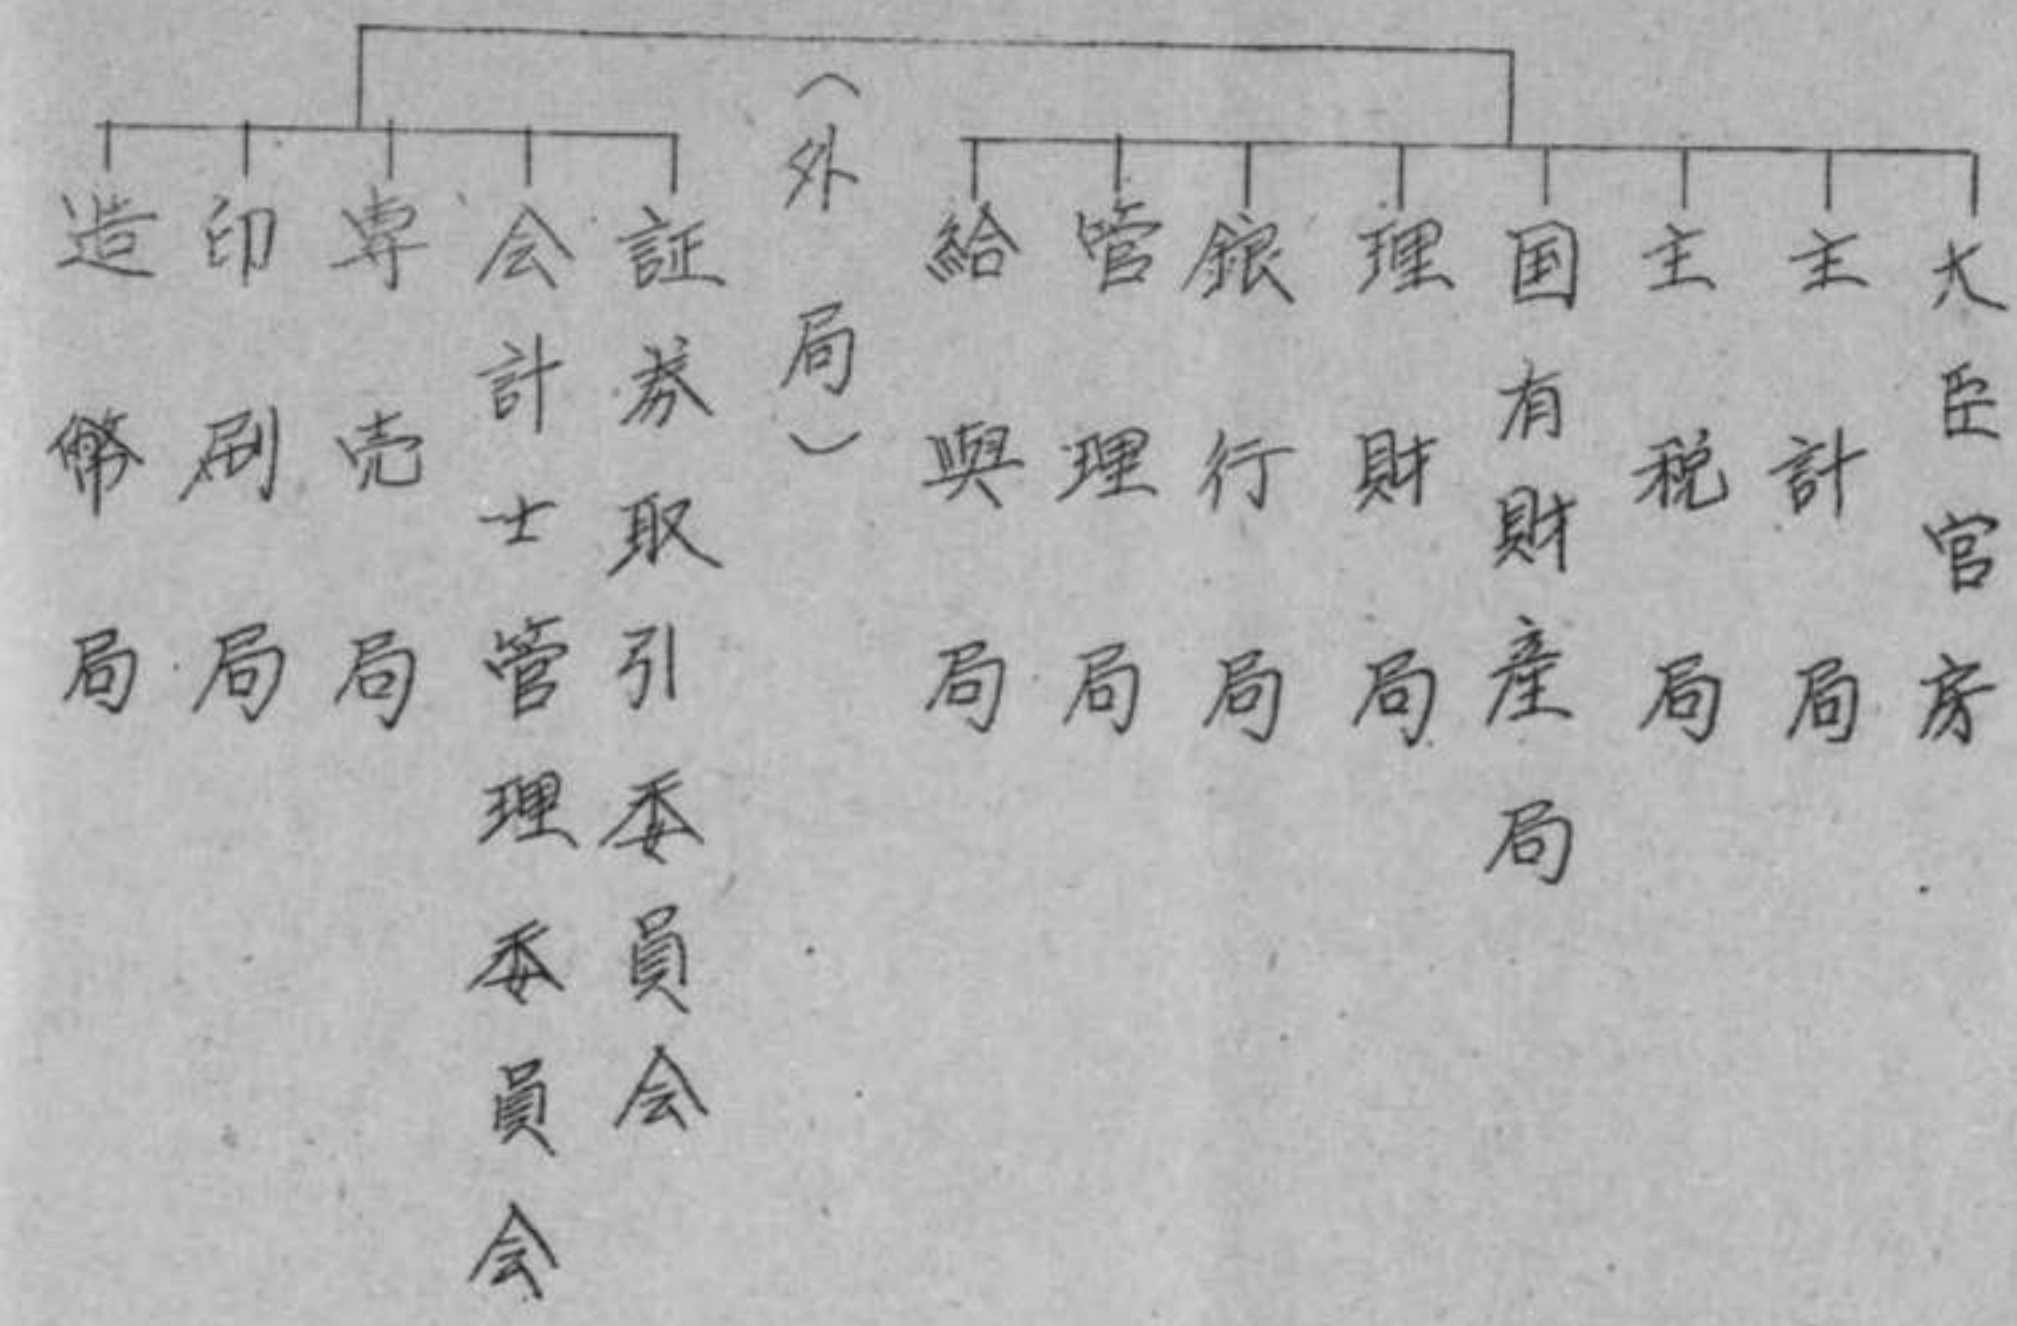 大臣官房
主計局
主税局
国有財産局
理財局
銀行局
管理局
給與局
（外局）
証券取引委員会
会計士管理委員会
専売局
印刷局
造幣局